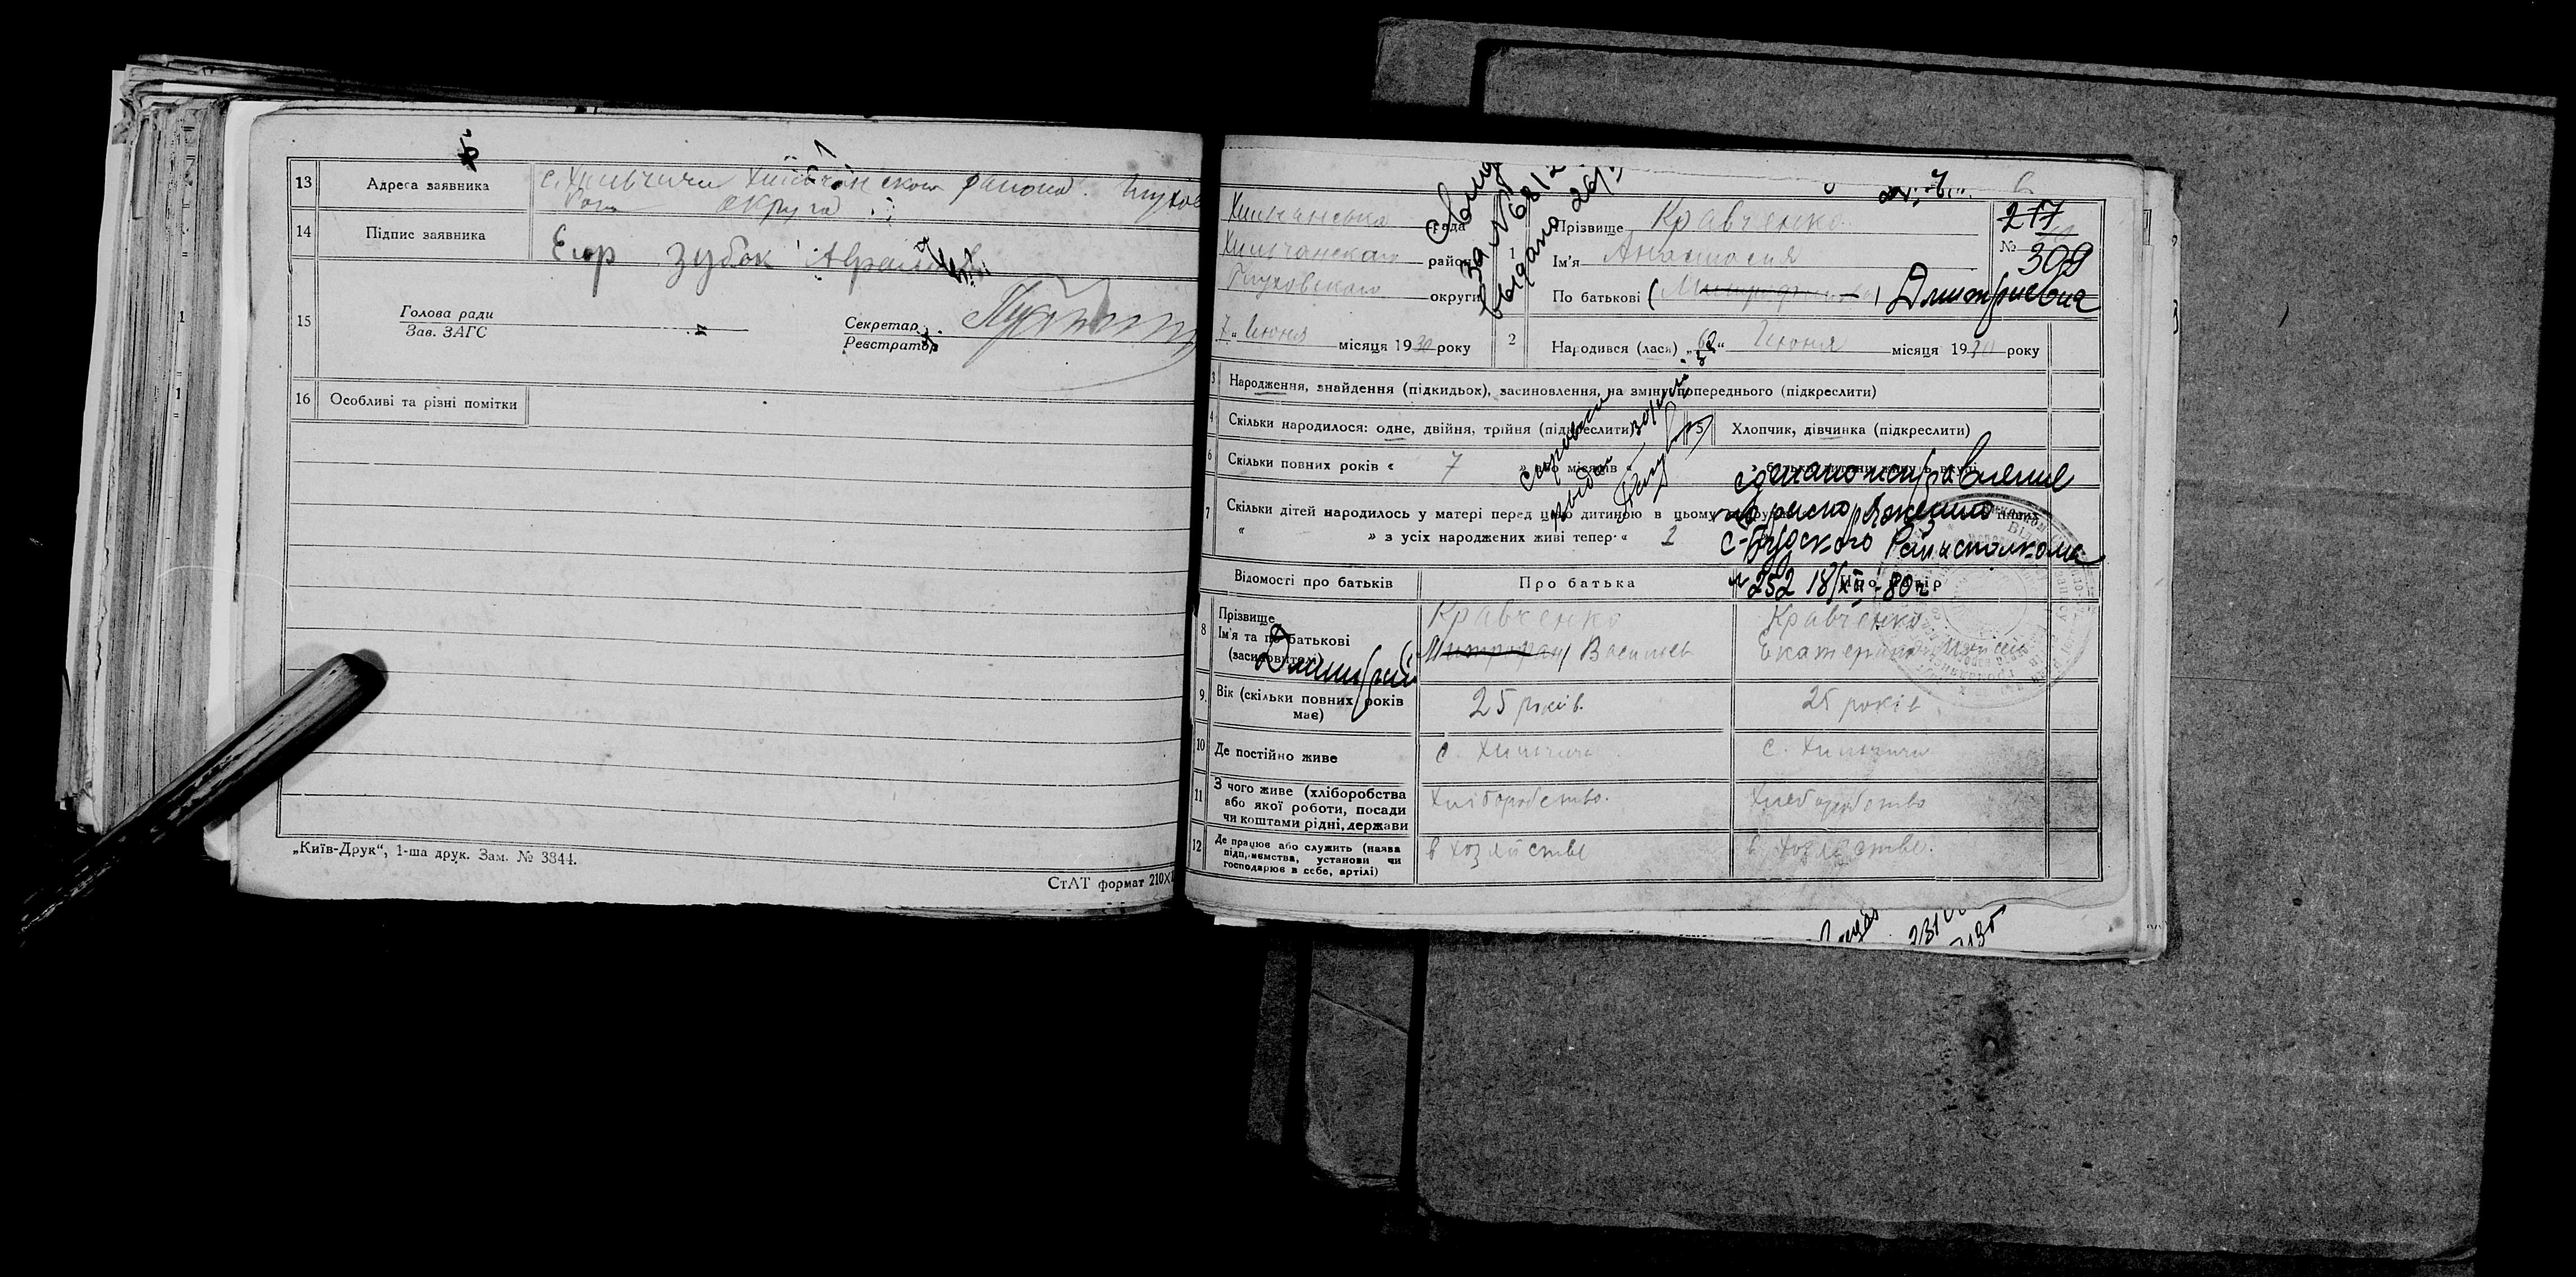 13 Адреса заявника с. Хильчичи района.
округа
14 Підпис заявника Егор Зубок
15 Голова ради
Зав. ЗАГС
Секретар
Реєстратор
16 Особливі та різні помітки
„Київ-Друк“, 1-ша друк. Зам. № 3844.
СтАТ формат 210×
за № 6812
выдано 26/
рада
район
округи
1 Прізвище Кравченко
Ім'я Анастасия
По батькові (Митрофановна) Дмитриевна
217
№ 309
7 „ Июня місяця 1930 року
2 Народився (лася) „ “ Июня місяця 1930 року
3 Народження, знайдення (підкидьок), засиновлення, на зміну попереднього (підкреслити)
4 Скільки народилося: одне, двійня, трійня (підкреслити)
5 Хлопчик, дівчинка (підкреслити)
6 Скільки повних років « 7
7 Скільки дітей народилось у матері перед цією дитиною в цьому
« » з усіх народжених живі тепер « 2
сделано исправление
по распоряжению
С-Будского Райисполкома
№ 252 18/XII-80г
Відомості про батьків Про батька
8 Прізвище Кравченко Кравченко
Ім'я та по батькові Митрофан Васильев Екатерина
(засиновителі) Дмитрий
9 Вік (скільки повних років має) 25 років. 25 років
10 Де постійно живе с. Хильчичи с. Хильчичи
11 З чого живе (хліборобства або якої роботи, посади чи коштами рідні, держави Хліборобство. Хлеборобство
12 Де працює або служить (назва підприємства, установи чи господарює в себе, артілі) в хозяйстве в хозяйстве.